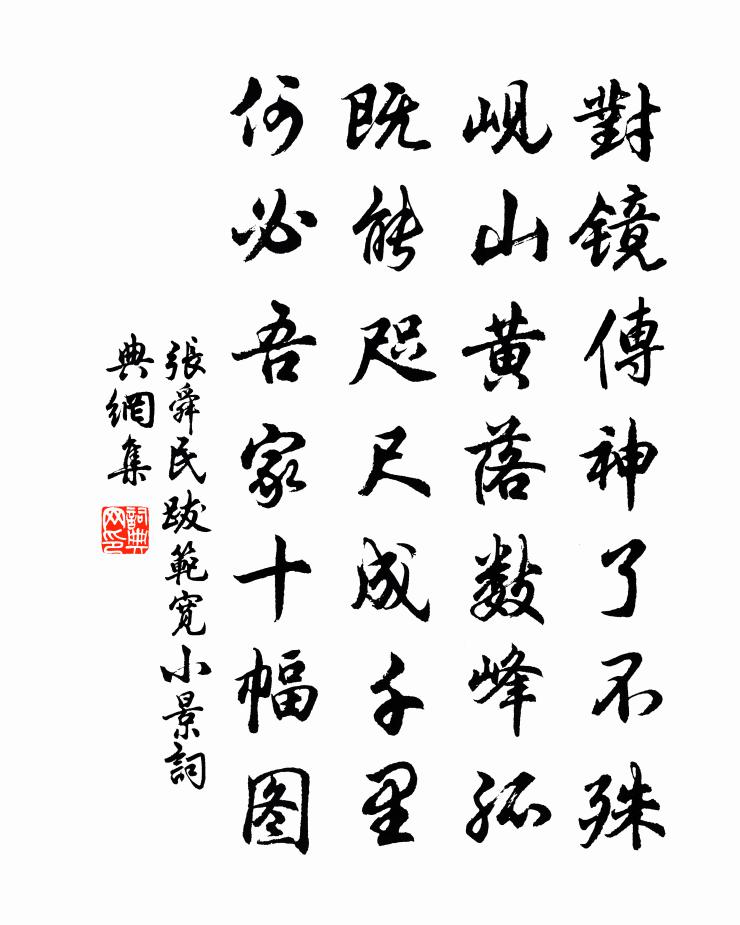 對镜傳神了不殊
峴山黄落数峰孤
既能咫尺成千里
何必吾家十幅图
張舜民跋範寬小景詞
典網集
詞典网印